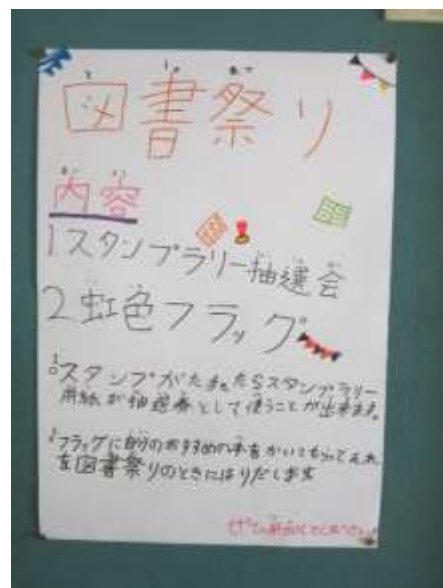 図書祭り
内容
1スタンプラリー抽選会
2虹色フラッグ
スタンプがたまったらスタンプラリー
用紙が抽選券として使うことが出来ます。
フラッグに自分のおすすめの本をかいてもらってそれ
を図書祭りのときにはりだします